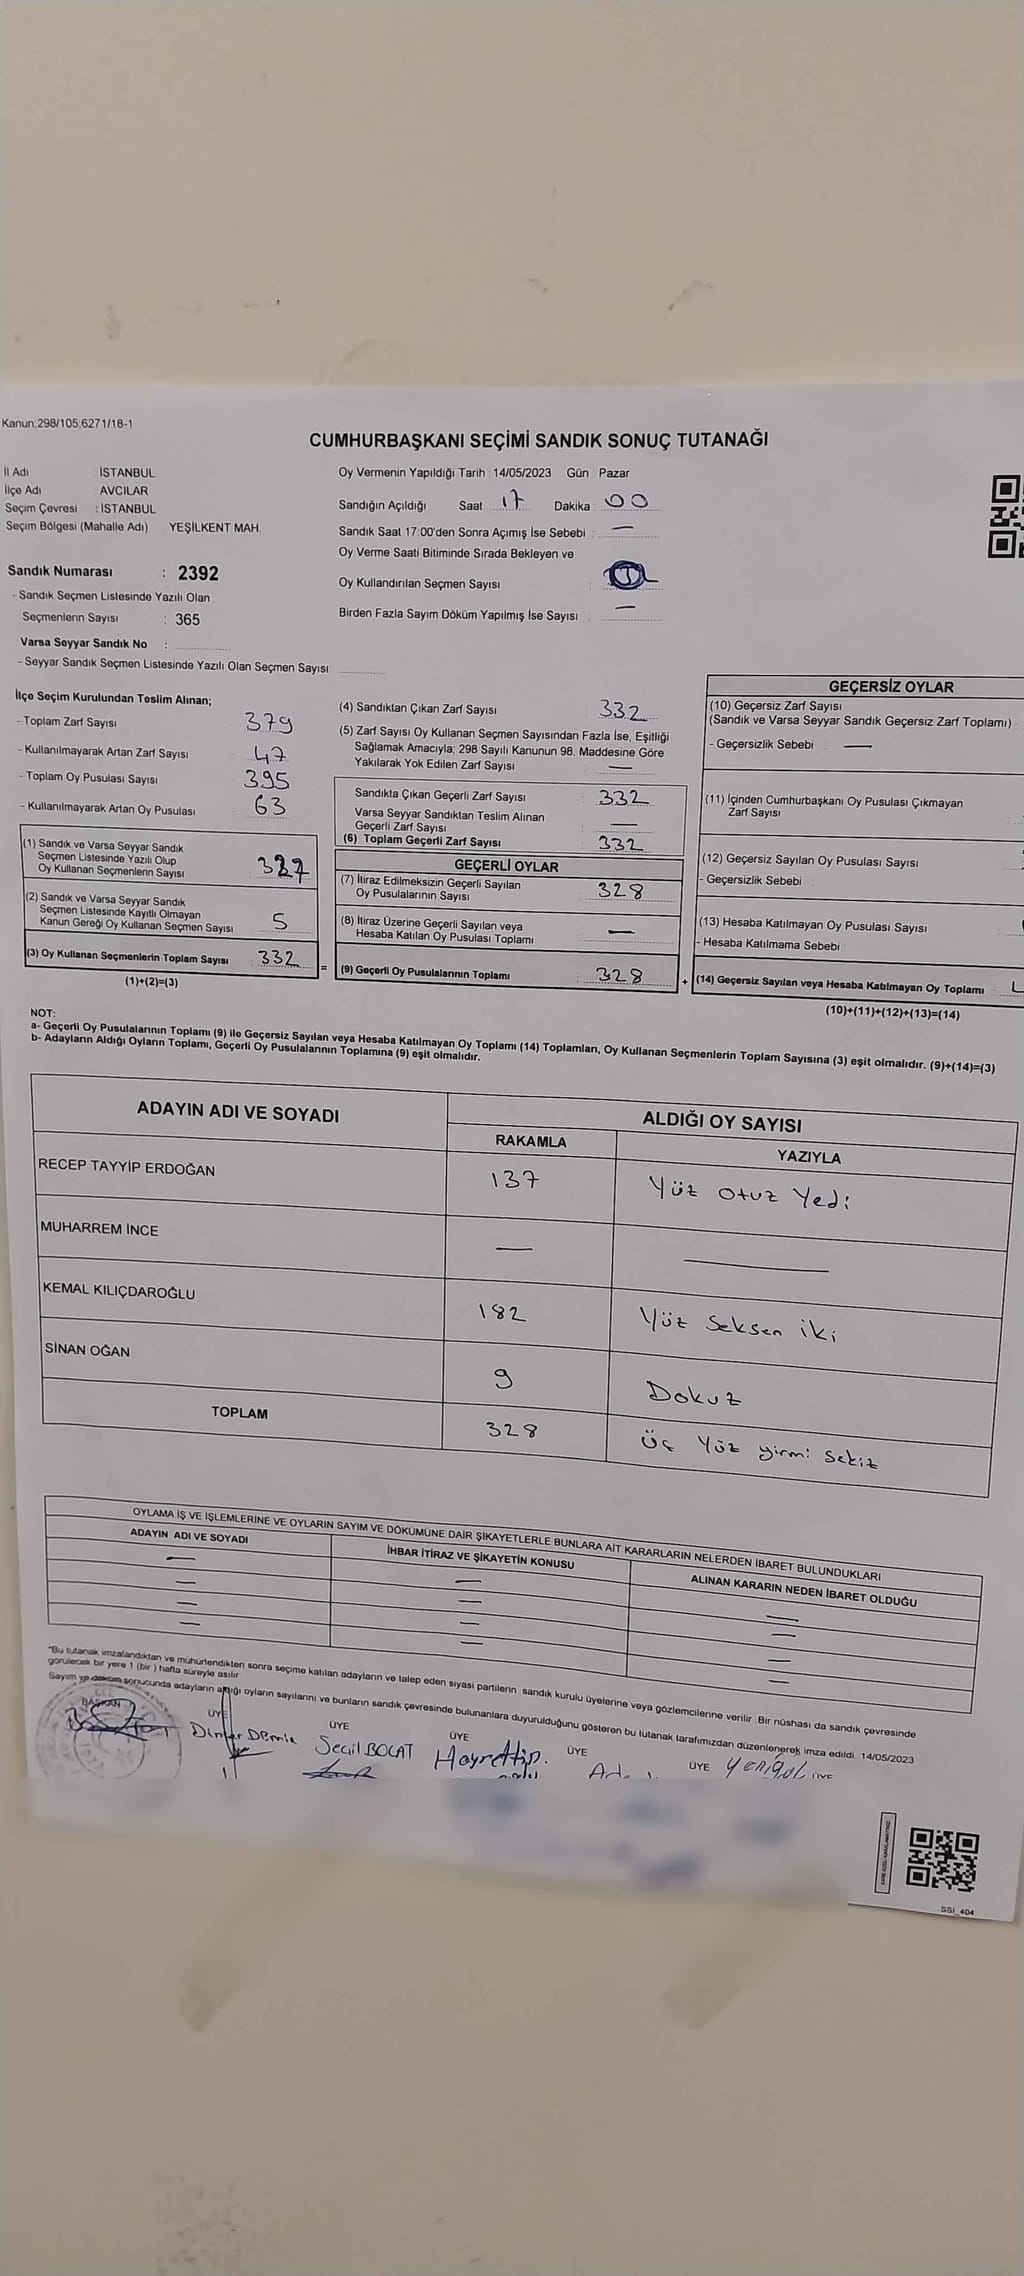 Kanun;298/105,6271/18-1
CUMHURBAŞKANI SEÇİMİ SANDIK SONUÇ TUTANAĞI
İl Adı İSTANBUL
İlçe Adı AVCILAR
Seçim Çevresi : İSTANBUL
Seçim Bölgesi (Mahalle Adı) YEŞİLKENT MAH.
Sandık Numarası : 2392
- Sandık Seçmen Listesinde Yazılı Olan
Seçmenlerin Sayısı : 365
Varsa Seyyar Sandık No :
- Seyyar Sandık Seçmen Listesinde Yazılı Olan Seçmen Sayısı:
Oy Vermenin Yapıldığı Tarih : 14/05/2023 Gün : Pazar
Sandığın Açıldığı Saat 17 Dakika : 00
Sandık Saat 17:00'den Sonra Açımış İse Sebebi : —
Oy Verme Saati Bitiminde Sırada Bekleyen ve
Oy Kullandırılan Seçmen Sayısı :
Birden Fazla Sayım Döküm Yapılmış İse Sayısı : —
İlçe Seçim Kurulundan Teslim Alınan;
- Toplam Zarf Sayısı 379
- Kullanılmayarak Artan Zarf Sayısı 47
- Toplam Oy Pusulası Sayısı 395
- Kullanılmayarak Artan Oy Pusulası 63
(1) Sandık ve Varsa Seyyar Sandık
Seçmen Listesinde Yazılı Olup
Oy Kullanan Seçmenlerin Sayısı : 327
(2) Sandık ve Varsa Seyyar Sandık
Seçmen Listesinde Kayıtlı Olmayan
Kanun Gereği Oy Kullanan Seçmen Sayısı 5
(3) Oy Kullanan Seçmenlerin Toplam Sayısı : 332
(1)+(2)=(3)
(4) Sandıktan Çıkan Zarf Sayısı : 332
(5) Zarf Sayısı Oy Kullanan Seçmen Sayısından Fazla İse, Eşitliği
Sağlamak Amacıyla; 298 Sayılı Kanunun 98. Maddesine Göre
Yakılarak Yok Edilen Zarf Sayısı : —
Sandıkta Çıkan Geçerli Zarf Sayısı : 332
Varsa Seyyar Sandıktan Teslim Alınan
Geçerli Zarf Sayısı —
(6) Toplam Geçerli Zarf Sayısı : 332
=
GEÇERLİ OYLAR
(7) İtiraz Edilmeksizin Geçerli Sayılan
Oy Pusulalarının Sayısı : 328
(8) İtiraz Üzerine Geçerli Sayılan veya
Hesaba Katılan Oy Pusulası Toplamı : —
(9) Geçerli Oy Pusulalarının Toplamı : 328
+
GEÇERSİZ OYLAR
(10) Geçersiz Zarf Sayısı
(Sandık ve Varsa Seyyar Sandık Geçersiz Zarf Toplamı)
- Geçersizlik Sebebi : —
(11) İçinden Cumhurbaşkanı Oy Pusulası Çıkmayan
Zarf Sayısı
(12) Geçersiz Sayılan Oy Pusulası Sayısı
- Geçersizlik Sebebi :
(13) Hesaba Katılmayan Oy Pusulası Sayısı
- Hesaba Katılmama Sebebi
(14) Geçersiz Sayılan veya Hesaba Katılmayan Oy Toplamı :
(10)+(11)+(12)+(13)=(14)
NOT:
a- Geçerli Oy Pusulalarının Toplamı (9) ile Geçersiz Sayılan veya Hesaba Katılmayan Oy Toplamı (14) Toplamları, Oy Kullanan Seçmenlerin Toplam Sayısına (3) eşit olmalıdır. (9)+(14)=(3)
b- Adayların Aldığı Oyların Toplamı, Geçerli Oy Pusulalarının Toplamına (9) eşit olmalıdır.
ADAYIN ADI VE SOYADI ALDIĞI OY SAYISI
RAKAMLA YAZIYLA
RECEP TAYYİP ERDOĞAN 137 Yüz otuz Yedi
MUHARREM İNCE — —
KEMAL KILIÇDAROĞLU 182 Yüz Seksen iki
SİNAN OĞAN 9 Dokuz
TOPLAM 328 Üç Yüz yirmi sekiz
OYLAMA İŞ VE İŞLEMLERİNE VE OYLARIN SAYIM VE DÖKÜMÜNE DAİR ŞİKAYETLERLE BUNLARA AİT KARARLARIN NELERDEN İBARET BULUNDUKLARI
ADAYIN ADI VE SOYADI İHBAR İTİRAZ VE ŞİKAYETİN KONUSU ALINAN KARARIN NEDEN İBARET OLDUĞU
— — —
— — —
— — —
— — —
*Bu tutanak imzalandıktan ve mühürlendikten sonra seçime katılan adayların ve talep eden siyasi partilerin sandık kurulu üyelerine veya gözlemcilerine verilir. Bir nüshası da sandık çevresinde
görülecek bir yere 1 (bir) hafta süreyle asılır.
Sayım ve döküm sonucunda adayların aldığı oyların sayılarını ve bunların sandık çevresinde bulunanlara duyurulduğunu gösteren bu tutanak tarafımızdan düzenlenerek imza edildi. 14/05/2023
BAŞKAN ÜYE ÜYE ÜYE ÜYE ÜYE ÜYE
Seçil BOCAT Hayrettin
SSI_404